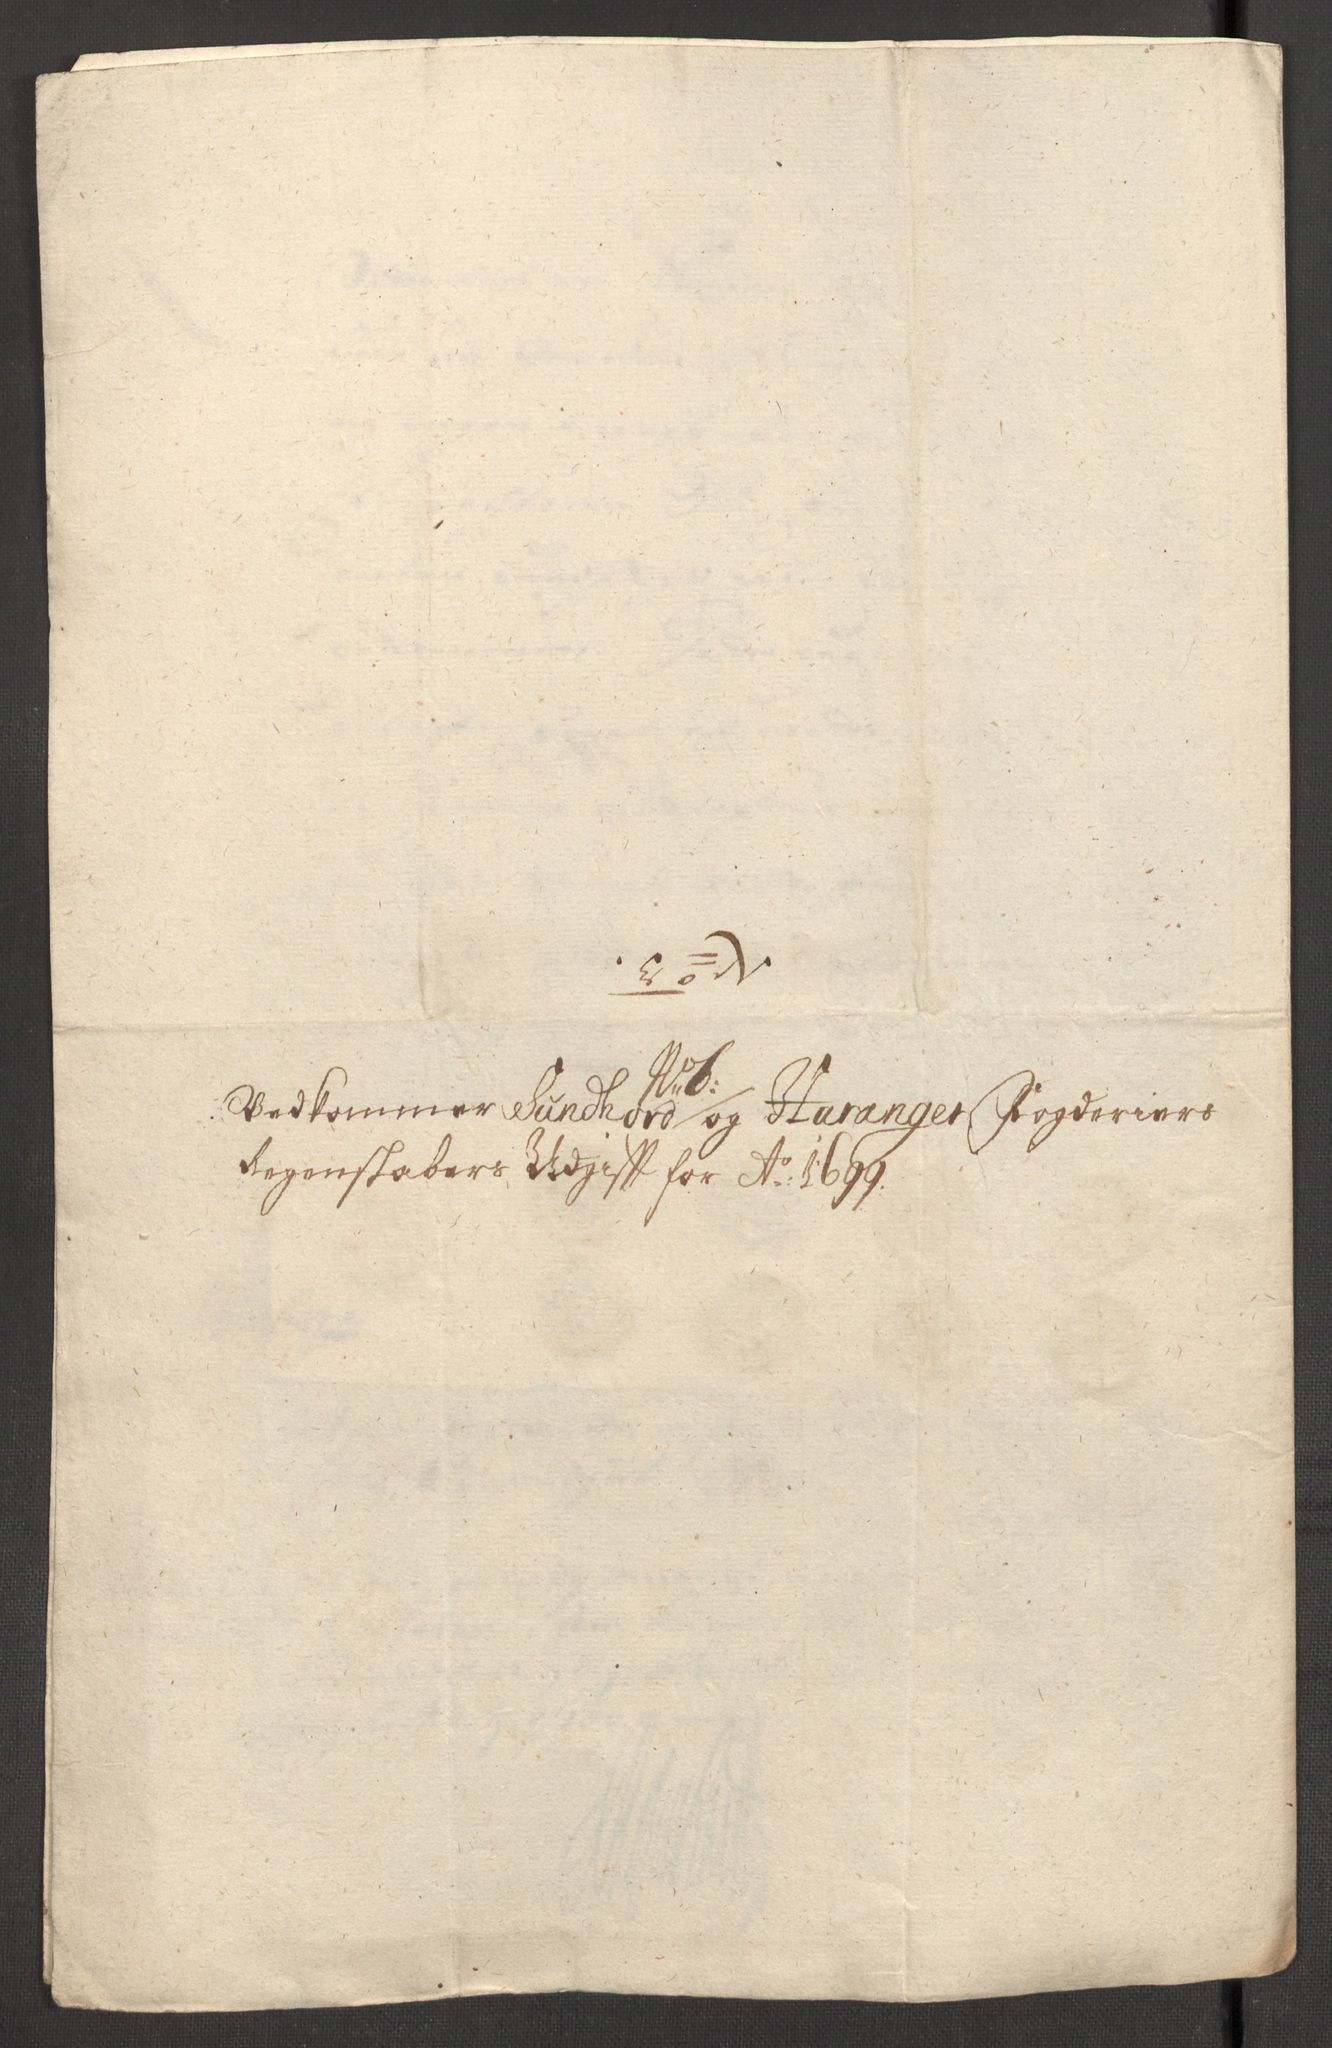 No 3.
No 6:
Vedkommer Sundhord og Haranger Fogderiers
Regenskabers Udgifft for Ao: 1699.